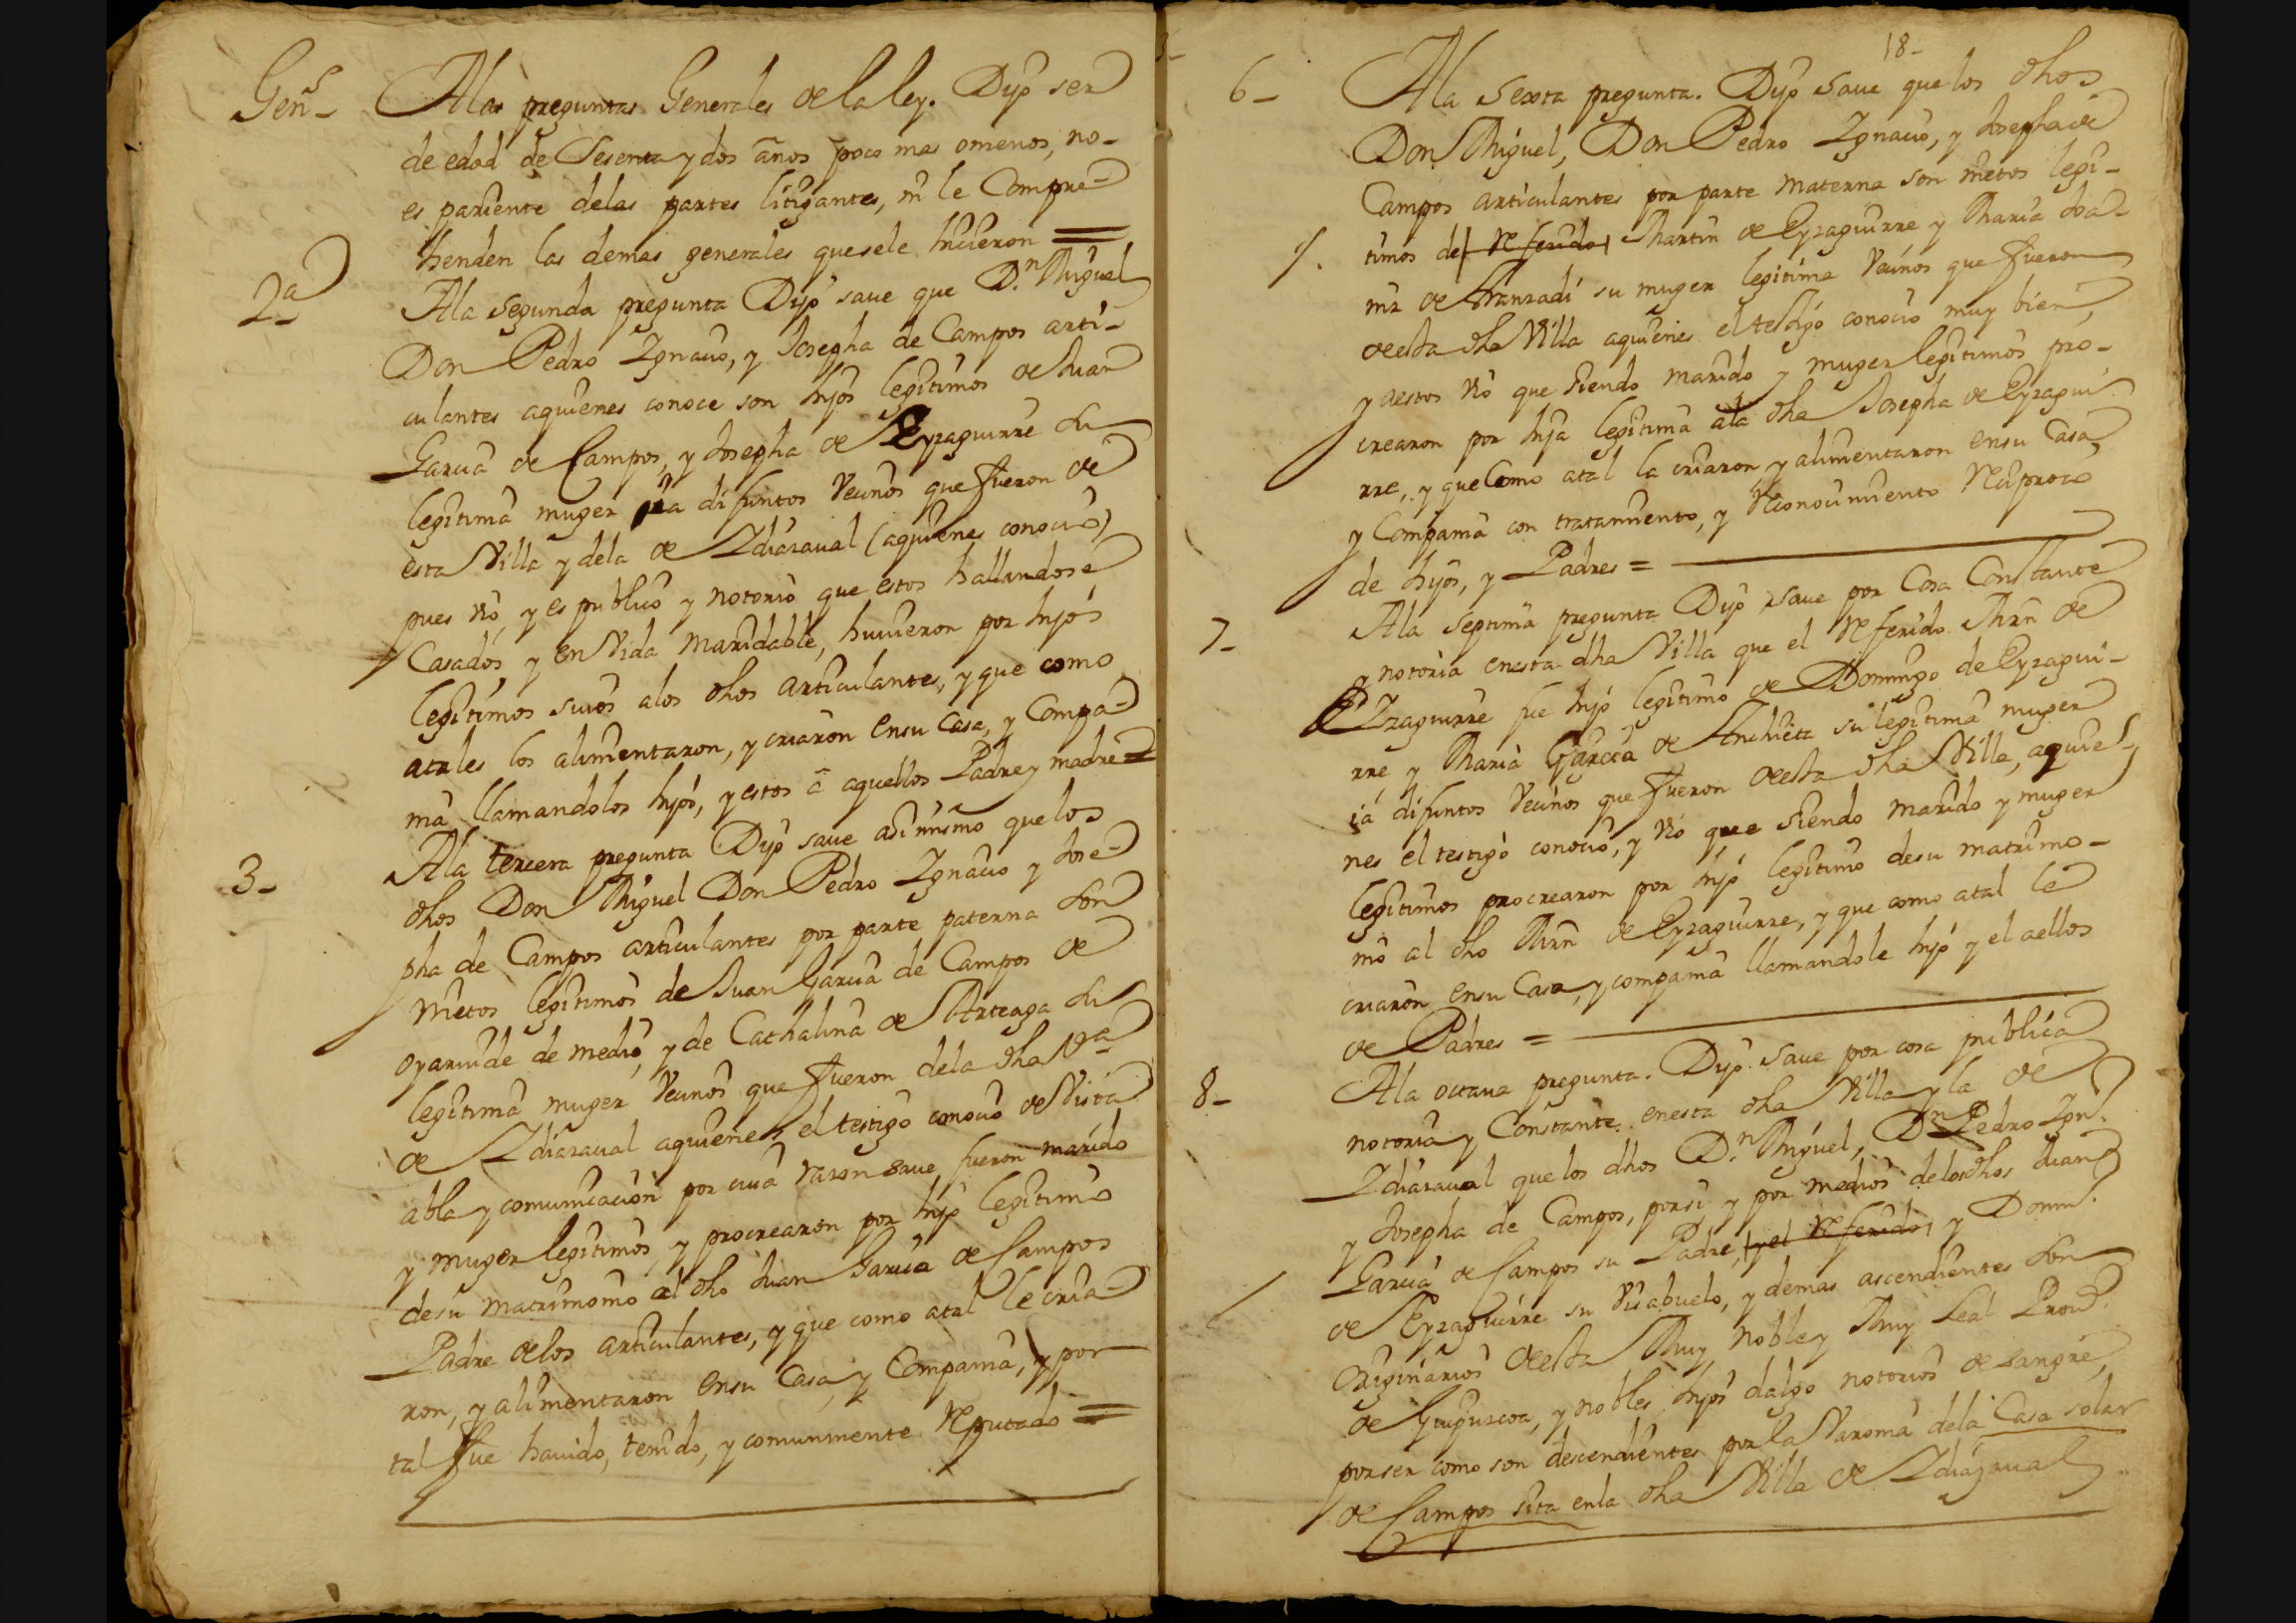 Gen.s Alas preguntas Generales de la ley. Dijo ser
de edad de Sesenta y dos años poco mas omenos, no-
es pariente delas partes litigantes, ni le Compre-
henden las demas generales quesele hicieron =
2a Ala segunda pregunta Dijo saue que D.n Miguel
Don Pedro Ignacio, y Josepha de Campos arti-
culantes aquienes conoce son hijos legitimos de Juan
Garcia de Campos, y Josepha de Eyzaguirre su
legitima muger ya difuntos Vecinos que fueron de
esta Villa y dela de Idiazaual (aquienes conocio)
pues vió, y es publico y notorio que estos hallandose
Casados, y en Vida Maridable, huuieron por hijos
legitimos suios alos dhos articulantes, y que como
atales los alimentaron, y criaron ensu Casa, y Compa-
nia llamandolos hijos, y estos a aquellos Padre y madre =
3- Ala tercera pregunta Dijo saue asi mismo quelos
dhos Don Miguel Don Pedro Ignacio y Jose-
pha de Campos articulantes por parte paterna son
nietos legitimos de Juan Garcia de Campos de
oyaruide de medio, y de Cathalina de Arteaga su
legitima muger Vecinos que fueron dela dha Va
de Idiazaual aquienes el testigo conocio de Vista
abla y comunicacion por cuia razon saue fueron marido
y muger legitimos, y procrearon por hijo legitimo
desu matrimonio al dho Juan Garcia de Campos
Padre delos articulantes, y que como atal le cria-
ron, y alimentaron ensu Casa, y Compania, y por
tal fue hauido, tenido, y comunmente Reputado =
18-
6- Ala Sexta pregunta. Dijo saue que los dhos
Don Miguel, Don Pedro Ignacio, y Josepha de
Campos articulantes por parte Materna son nietos legi-
timos del Referido Martin de Eyzaguirre y Maria Joa-
niz de Aranzadi su muger legitima Vecinos que fueron
deesta dha Villa aquienes el testigo conocio muy bien,
y aestos vió que siendo marido y muger legitimos pro-
crearon por hija legitima ala dha Josepha de Eyzagui
rre, y que Como atal la criaron, y alimentaron ensu Casa,
y Compania con tratamiento, y Reconocimiento Reciproco
de hijos, y Padres =
7- Ala septima pregunta Dijo saue por Cosa Constante
y notoria enesta dha Villa que el Referido Mrn de
Eyzaguirre fue hijo legitimo de Domingo de Eyzagui-
rre, y Maria Garcia de Anchieta su legitima muger
ia difuntos Vecinos que fueron deesta dha Villa, aquie-
nes el testigo conocio, y vió que siendo marido y muger
legitimos procrearon por hijo legitimo desu matrimo-
nio al dho Mrn de Eyzaguirre, y que como atal le
criaron ensu Casa, y compania llamandole hijo y el aellos
de Padres =
8- Ala octaua pregunta. Dijo saue por cosa publica
notoria y Constante enesta dha Villa y la de
Idiazaual que los dhos D.n Miguel, D.n Pedro Ign.o
y Josepha de Campos, porsi, y por medios delosdhos Juan
Garcia de Campos su Padre, y el Referido y Dom.o
de Eyzaguirre su Visabuelo, y demas ascendientes son
Originarios deesta Muy noble y Muy Leal Prou.a
de Guipuzcoa, y nobles hijos dalgo notorios de sangre,
por ser como son descendientes por la Varonia dela Casa solar
de Campos sita enla dha Villa de Idiazaual